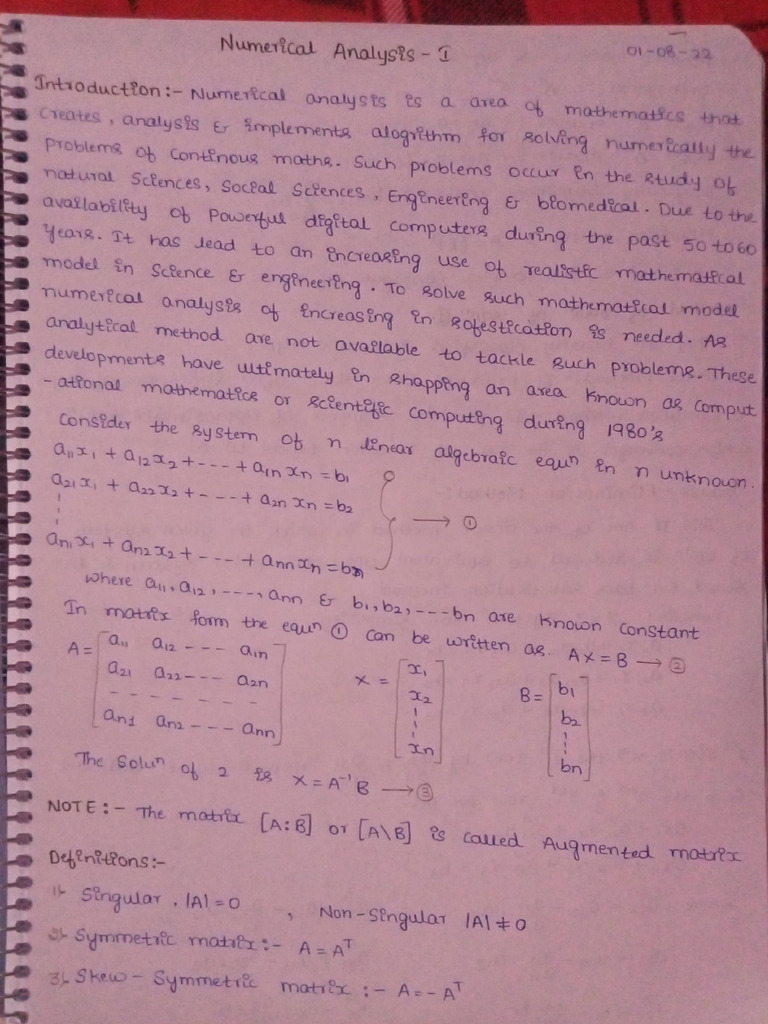 Numerical Analysis - I
01-08-22
Introduction:- Numerical analysis is a area of mathematics that
creates, analysis & implements alogrithm for solving numerically the
problems of continous maths. Such problems occur in the study of
natural Sciences, Social Sciences, Engineering & biomedical. Due to the
availability of powerful digital computers during the past 50 to 60
years. It has lead to an increasing use of realistic mathematical
model in Science & engineering. To solve such mathematical model
numerical analysis of increasing in sofestication is needed. As
analytical method are not available to tackle such problems. These
developments have ultimately in shapping an area known as comput
-ational mathematics or scientific computing during 1980's
Consider the system of n linear algebraic equn in n unknown.
a11x1 + a12x2 + --- + a1nxn = b1
a21x1 + a22x2 + --- + a2nxn = b2
→ ①
an1x1 + an2x2 + --- + annxn = bn
where a11, a12, ---, ann & b1, b2, --- bn are known constant
In matrix form the equn ① can be written as. AX = B → ②
A = [a11 a12 --- a1n
a21 a22 --- a2n
- - - - - - -
an1 an2 --- ann]
X = [x1
x2
⋮
xn]
B = [b1
b2
⋮
bn]
The Solun of 2 is X = A⁻¹B → ③
NOTE:- The matrix [A:B] or [A\B] is called Augmented matrix
Definitions:-
1). Singular. |A| = 0 , Non-Singular |A| ≠ 0
2). Symmetric matrix:- A = Aᵀ
3). Skew - Symmetric matrix :- A = -Aᵀ